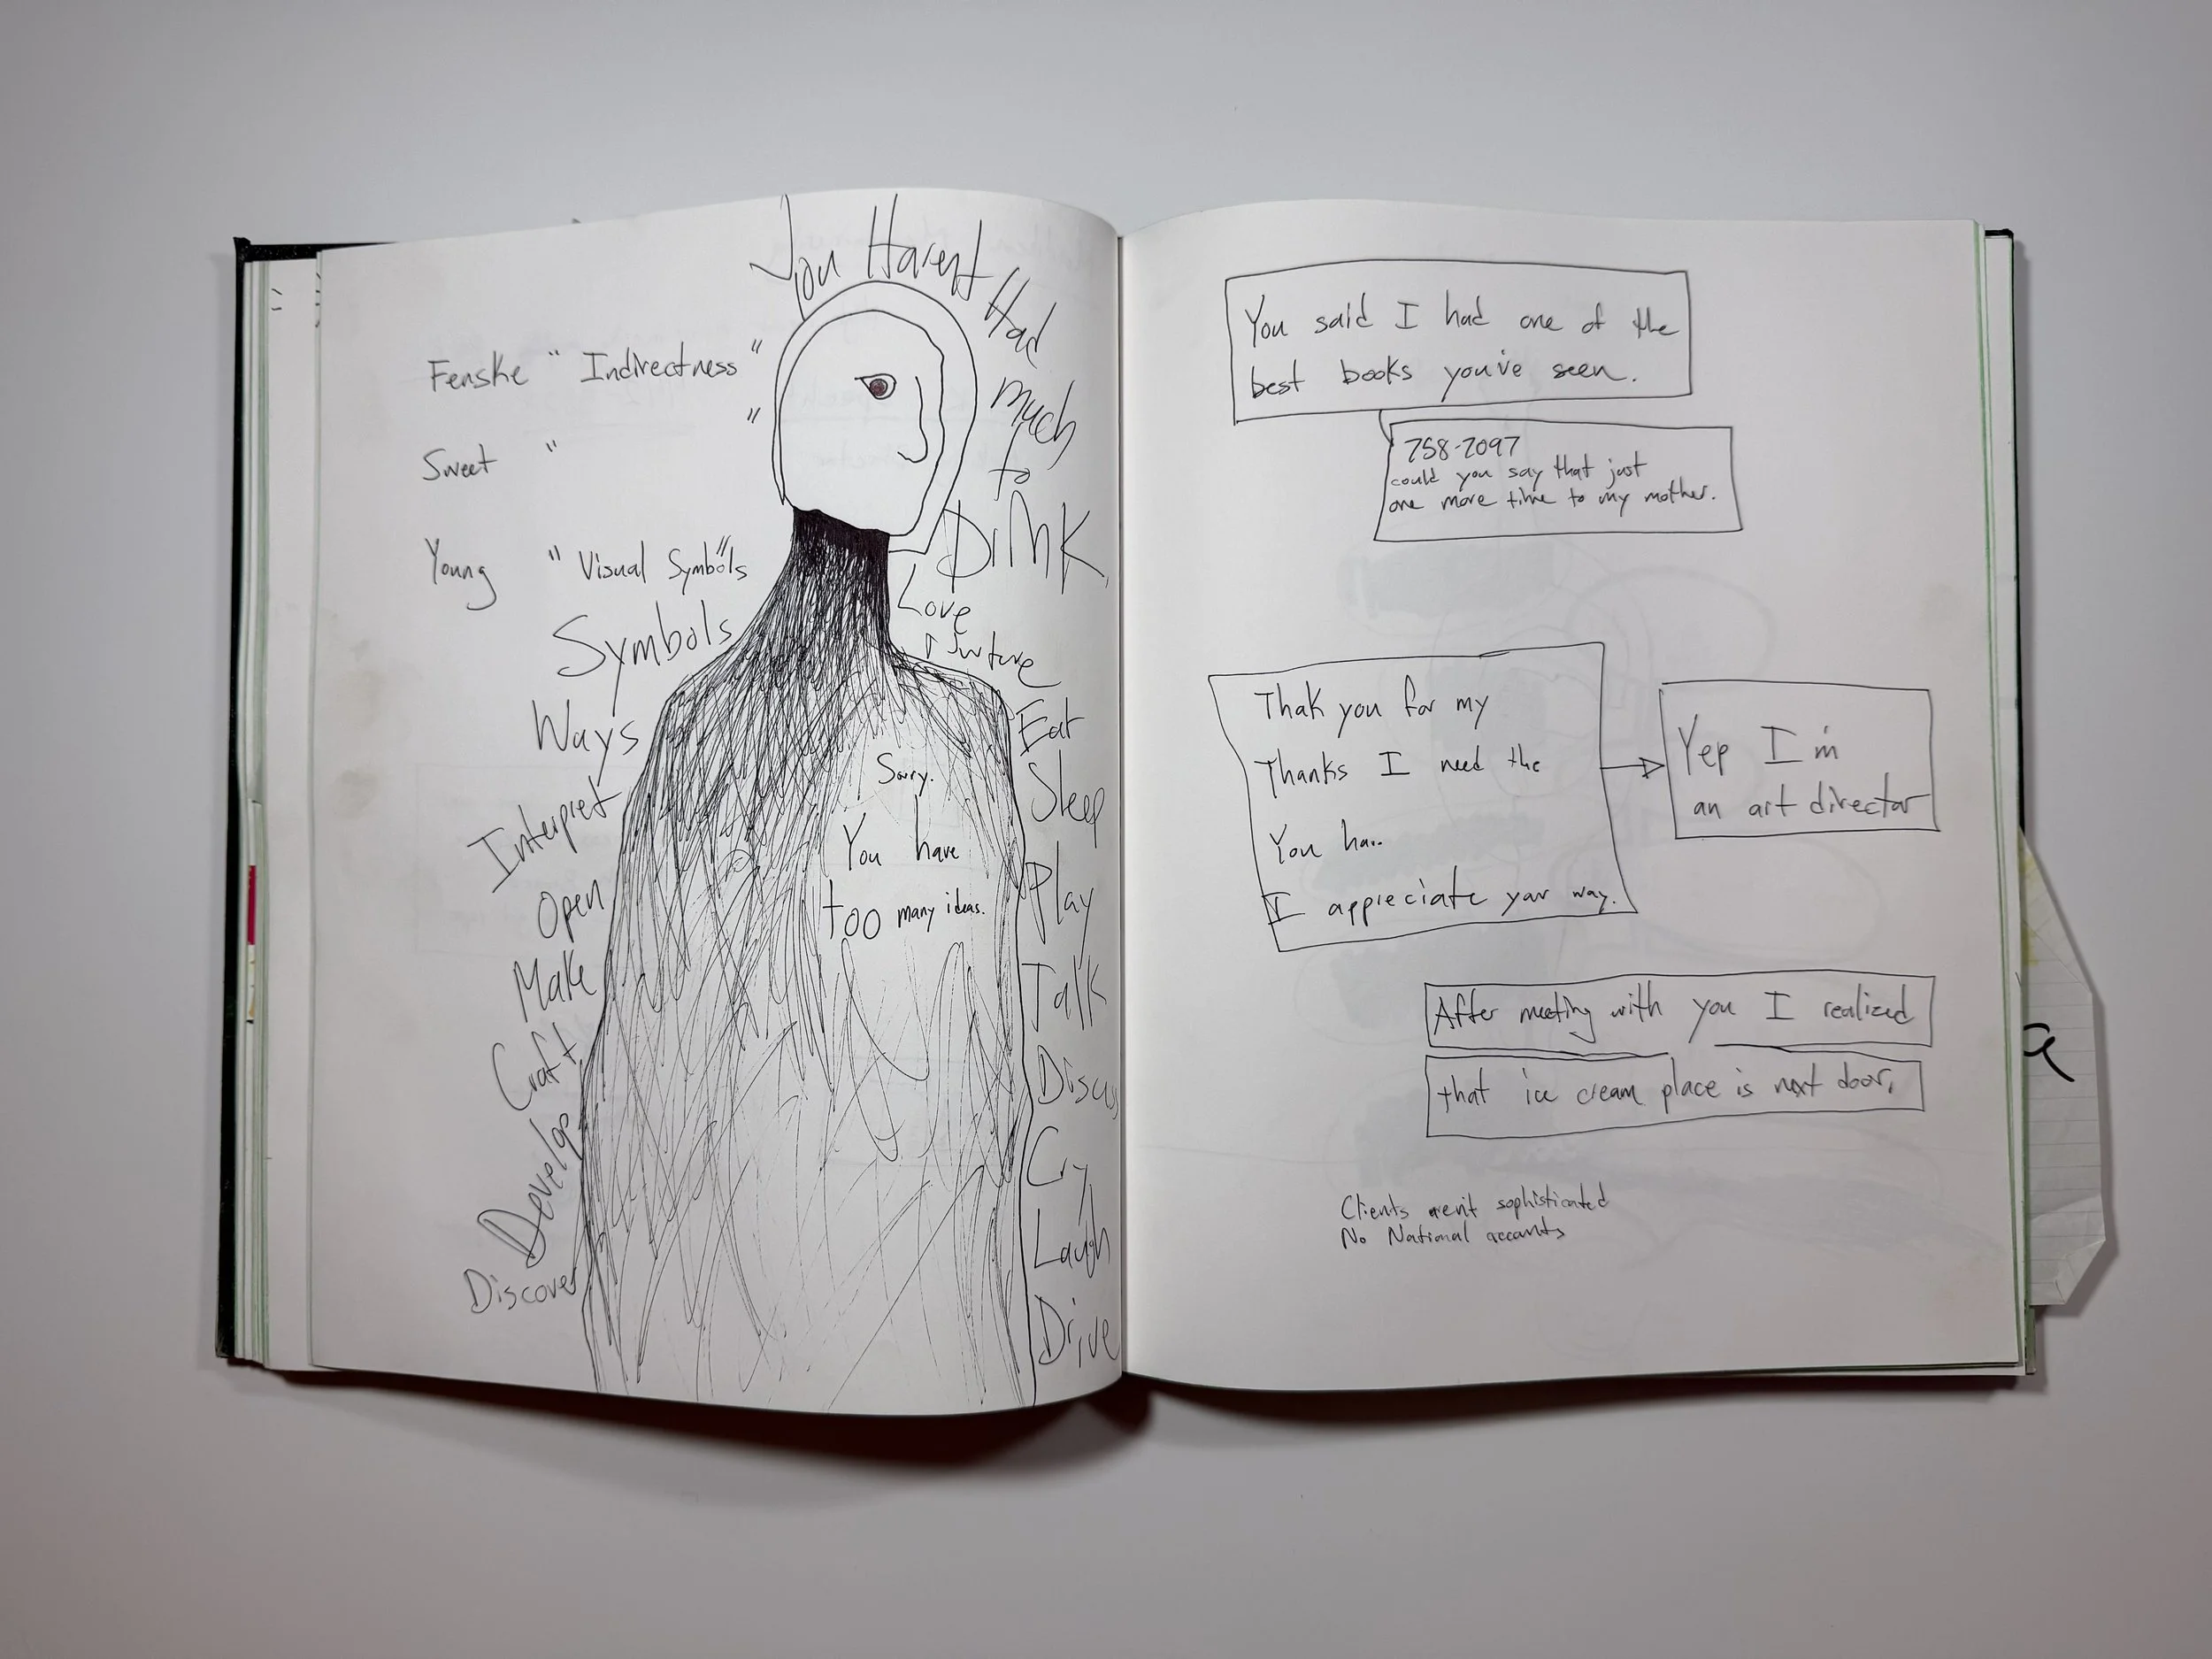 You Havent Had much to DrINK
Fenske " Indirectness "
Sweet " "
Young " Visual Symbols "
Symbols
Ways
Interpret
Open
Make
Craft
Develop
Discover
Love
Nurture
Eat
Sleep
Play
Talk
Discuss
Cry
Laugh
Drive
Sorry.
You have
too many ideas.
You said I had one of the
best books you've seen.
258-2097
could you say that just
one more time to my mother.
Thak you for my
Thanks I need the
You ha..
I appreciate your way.
Yep I'm
an art director
After meeting with you I realized
that ice cream place is next door.
Clients aren't sophisticated
No National accounts
a